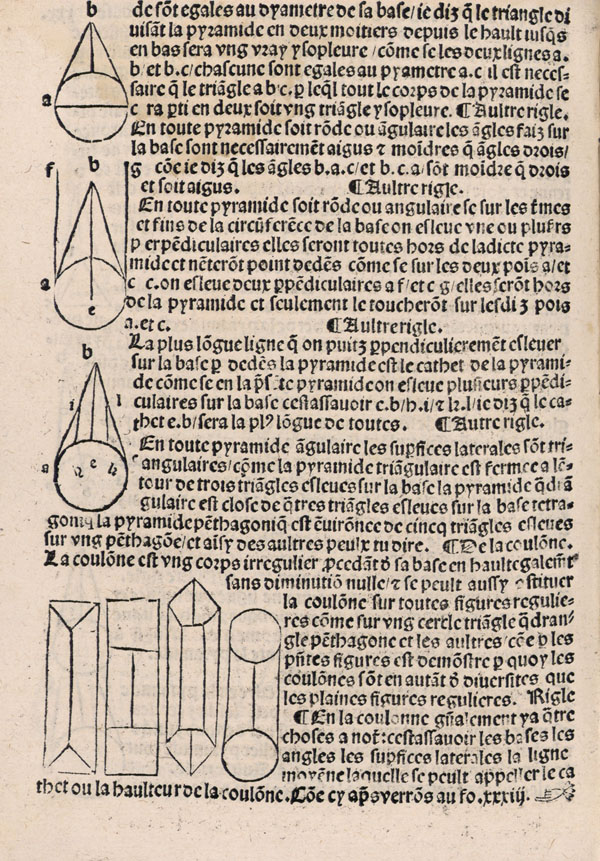 de sõt egales au dyametre de sa base/ie diz q̃ le triangle di
uisãt la pyramide en deux moitiers depuis le hault iusq̃s
en bas sera vng vray ysopleure/cõme se les deux lignes a.
b/et b.c/chascune sont egales au pyametre a.c il est neces-
saire que le triãgle a b c. p leq̃l tout le corps de la pyramide se
c ra pti en deux soit vng triãgle ysopleure. ¶Aultre rigle.
En toute pyramide soit rõde ou ãgulaire les ãgles faiz sur
la base sont necessairemẽt aigus ⁊ moĩdres q̃ ãgles drois/
cõe ie diz q̃ les ãgles b.a.c/et b.c.a/sõt moĩdre q̃ drois
et soit aigus. ¶Aultre rigle.
En toute pyramide soit rõde ou angulaire se sur les t̃mes
et fins de la circũferẽce de la base on esleue vne ou plusrs
p erpẽdiculaires elles seront toutes hors de ladicte pyra-
mide et nẽterõt point dedẽs cõme se sur les deux poĩs a/et
c.on esleue deux ppẽdiculaires a f/et c g/elles serõt hors
de la pyramide et seulement le toucherõt sur lesdi z pois
a.et c. ¶Aultre rigle.
La plus lõgue ligne q̃ on puitz ppendiculieremẽt esleuer
sur la base p dedẽs la pyramide est le cathet de la pyrami-
de cõme se en la pyramide on esleue plusieurs ppẽdi-
culaires sur la base cestassauoir e.b/h.i/⁊ k.l/ie diz q̃ le ca-
thet e.b/sera la plꝰ lõgue de toutes. ¶Autre rigle.
En toute pyramide ãgulaire les supfices laterales sõt tri-
angulaires/cõme la pyramide triãgulaire est fermee a lẽ-
tour de trois triãgles esleues sur la base la pyramide q̃drã
gulaire est close de q̃tres triãgles esleues sur la base tetra-
goniq̃ la pyramide pẽthagoniq̃ est ẽuirõnee de cincq triãgles esleues
sur vng pẽthagõe/et aĩsy des aultres peulx tu dire. ¶De la coulõne.
La coulõne est vng corps irregulier pcedãt d̃ sa base en hault egalemt̃
sans diminutiõ nulle/⁊ se peult aussy cstituer
la coulõne sur toutes figures regulie-
res cõme sur vng cercle triãgle q̃dran-
gle pẽthagone et les aultres/cõe p les
pñtes figures est demõstre p quoy les
coulõnes sõt en autãt d̃ diuersites que
les plaines figures regulieres. Rigle
¶En la coulonne gñalement ya q̃tre
choses a not̃:cestassauoir les bases les
angles les supfices laterales la ligne
moyẽne laquelle se peult appeller le ca
thet ou la haulteur de la coulõne. Cõe cy apũs verrõs au fo.xxxiij.
b
a
f
b
g
a
c
e
b
i
l
a
h
e
k